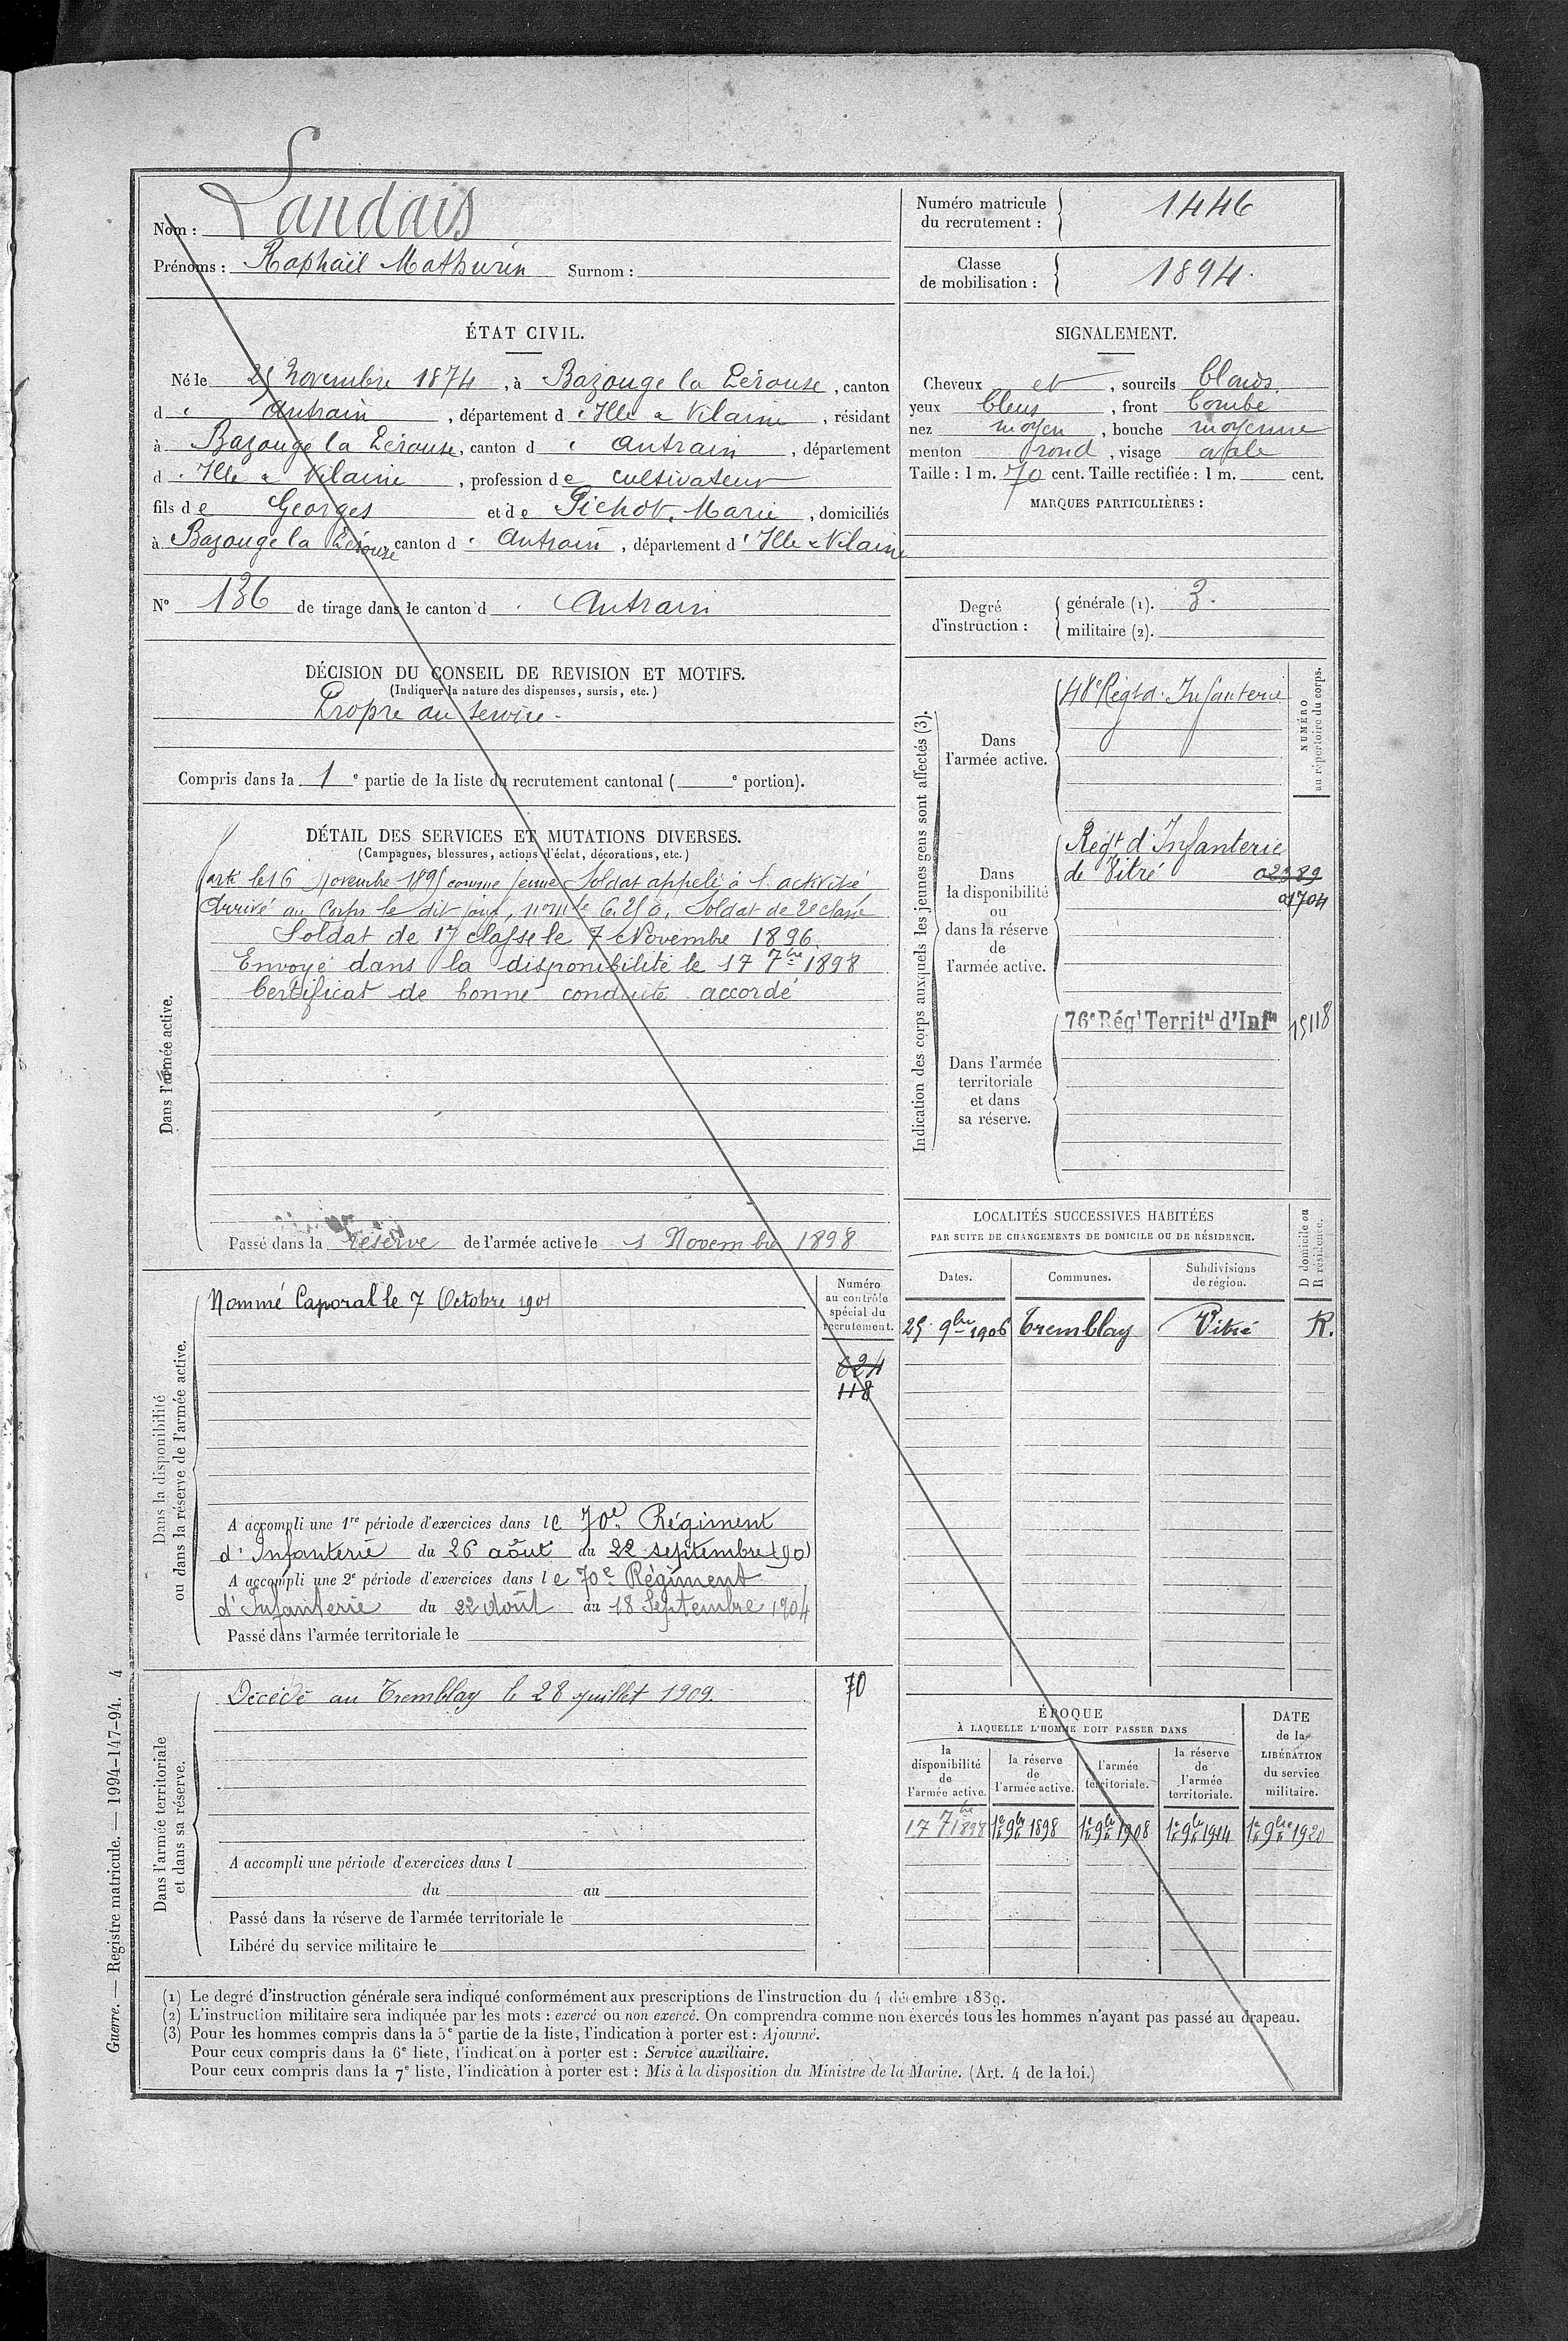 Nom : Landais
Prénoms : Raphaël Mathurin Surnom :
Numéro matricule du recrutement : 1446
Classe de mobilisation : 1894.
ÉTAT CIVIL.
Né le 25 Novembre 1874, à Bazouge la Pérouse, canton
d' Antrain, département d' Ille & Vilaine, résidant
à Bazouge la Pérouse, canton d' Antrain, département
d' Ille & Vilaine, profession de cultivateur
fils de Georges et de Pichot, Marie, domiciliés
à Bazouge la Pérouse canton d' Antrain, département d' Ille & Vilaine
N° 136 de tirage dans le canton d' Antrain
SIGNALEMENT.
Cheveux et, sourcils blonds
yeux bleus, front bombé
nez moyen, bouche moyenne
menton rond, visage ovale
Taille : 1 m. 70 cent. Taille rectifiée : 1 m. cent.
MARQUES PARTICULIÈRES :
Degré d'instruction :
générale (1). 3.
militaire (2).
DÉCISION DU CONSEIL DE REVISION ET MOTIFS.
(Indiquer la nature des dispenses, sursis, etc.)
Propre au service.
Compris dans la 1e partie de la liste du recrutement cantonal ( e portion).
DÉTAIL DES SERVICES ET MUTATIONS DIVERSES.
(Campagnes, blessures, actions d'éclat, décorations, etc.)
Dans l'armée active.
Parti le 16 Novembre 1895 comme jeune Soldat appelé à l'activité
Arrivé au Corps le dit jour, n° mle 6250. Soldat de 2e classe
Soldat de 1re classe le 7 Novembre 1896.
Envoyé dans la disponibilité le 17 7bre 1898
Certificat de bonne conduite accordé
Passé dans la réserve de l'armée active le 1 Novembre 1898
Indication des corps auxquels les jeunes gens sont affectés (3).
NUMÉRO au répertoire du corps.
Dans l'armée active.
48e Régt d'Infanterie
Dans la disponibilité ou dans la réserve de l'armée active.
Régt d'Infanterie
de Vitré 02389
01704
Dans l'armée territoriale et dans sa réserve.
76e Régt Territal d'Infie 15118
LOCALITÉS SUCCESSIVES HABITÉES
PAR SUITE DE CHANGEMENTS DE DOMICILE OU DE RÉSIDENCE.
Dates. Communes. Subdivisions de région. D domicile ou R résidence.
25 9bre 1906 Tremblay Vitré R.
Dans la disponibilité ou dans la réserve de l'armée active.
Numéro au contrôle spécial du recrutement.
Nommé Caporal le 7 Octobre 1901
624
118
A accompli une 1re période d'exercices dans le 70e Régiment
d'Infanterie du 26 août au 22 septembre 1901
A accompli une 2e période d'exercices dans le 70e Régiment
d'Infanterie du 22 Août au 18 Septembre 1904
Passé dans l'armée territoriale le
Dans l'armée territoriale et dans sa réserve.
Décédé au Tremblay le 28 juillet 1909. 70
A accompli une période d'exercices dans l
du au
Passé dans la réserve de l'armée territoriale le
Libéré du service militaire le
ÉPOQUE
À LAQUELLE L'HOMME DOIT PASSER DANS
la disponibilité de l'armée active. la réserve de l'armée active. l'armée territoriale. la réserve de l'armée territoriale. DATE de la LIBÉRATION du service militaire.
17 7bre 1898 1er 9bre 1898 1er 9bre 1908 1er 9bre 1914 1er 9bre 1920
(1) Le degré d'instruction générale sera indiqué conformément aux prescriptions de l'instruction du 4 décembre 1889.
(2) L'instruction militaire sera indiquée par les mots : exercé ou non exercé. On comprendra comme non exercés tous les hommes n'ayant pas passé au drapeau.
(3) Pour les hommes compris dans la 5e partie de la liste, l'indication à porter est : Ajourné.
Pour ceux compris dans la 6e liste, l'indication à porter est : Service auxiliaire.
Pour ceux compris dans la 7e liste, l'indication à porter est : Mis à la disposition du Ministre de la Marine. (Art. 4 de la loi.)
Guerre. — Registre matricule. — 1994-147-94. 4